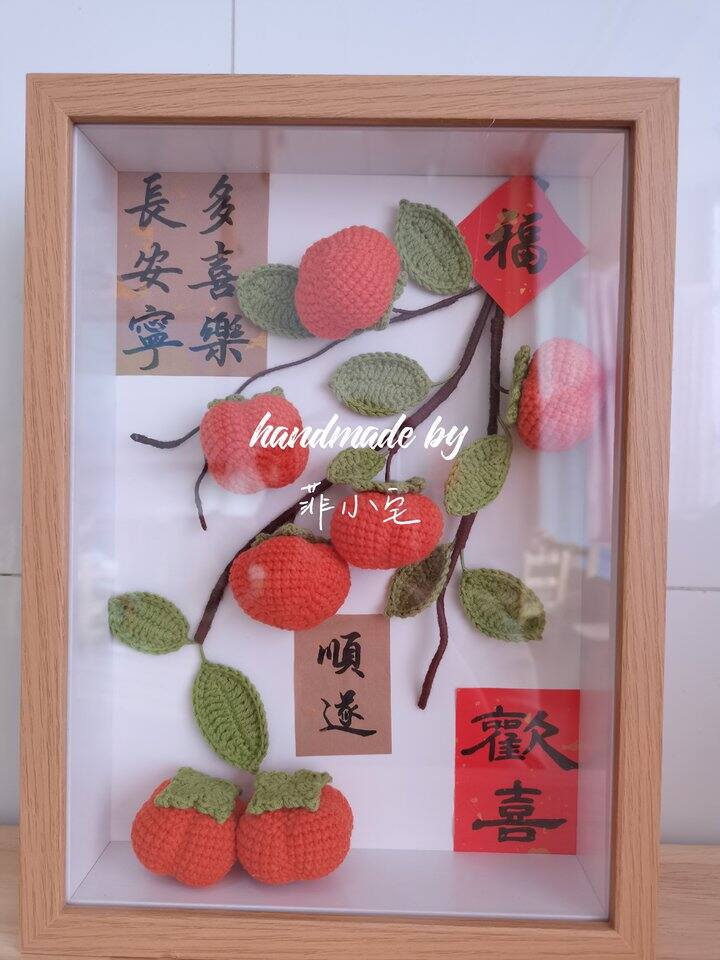 多喜樂
長安寧
福
handmade by
菲小宅
順遂
歡喜